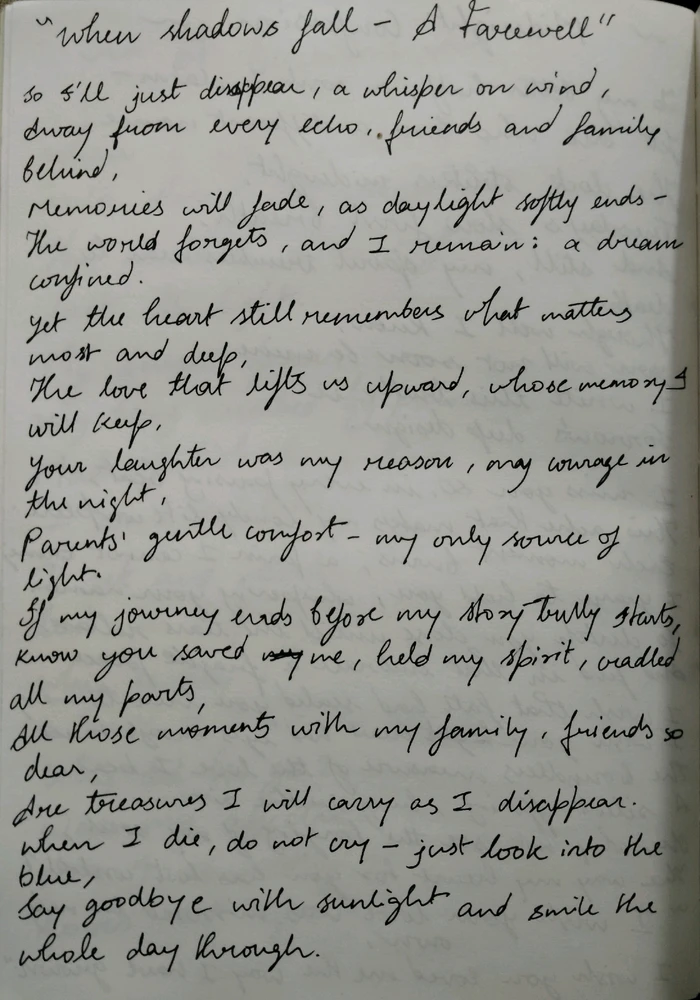 "When shadows fall - A Farewell"
so I'll just disappear, a whisper on wind,
Away from every echo, friends and family
behind,
Memories will fade, as daylight softly ends -
The world forgets, and I remain: a dream
confined.
Yet the heart still remembers what matters
most and deep,
The love that lifts us upward, whose memory I
will keep,
Your laughter was my reason, my courage in
the night,
Parents' gentle comfort - my only source of
light.
If my journey ends before my story truly starts,
Know you saved me, held my spirit, cradled
all my parts,
All those moments with my family, friends so
dear,
Are treasures I will carry as I disappear.
When I die, do not cry - just look into the
blue,
Say goodbye with sunlight and smile the
whole day through.